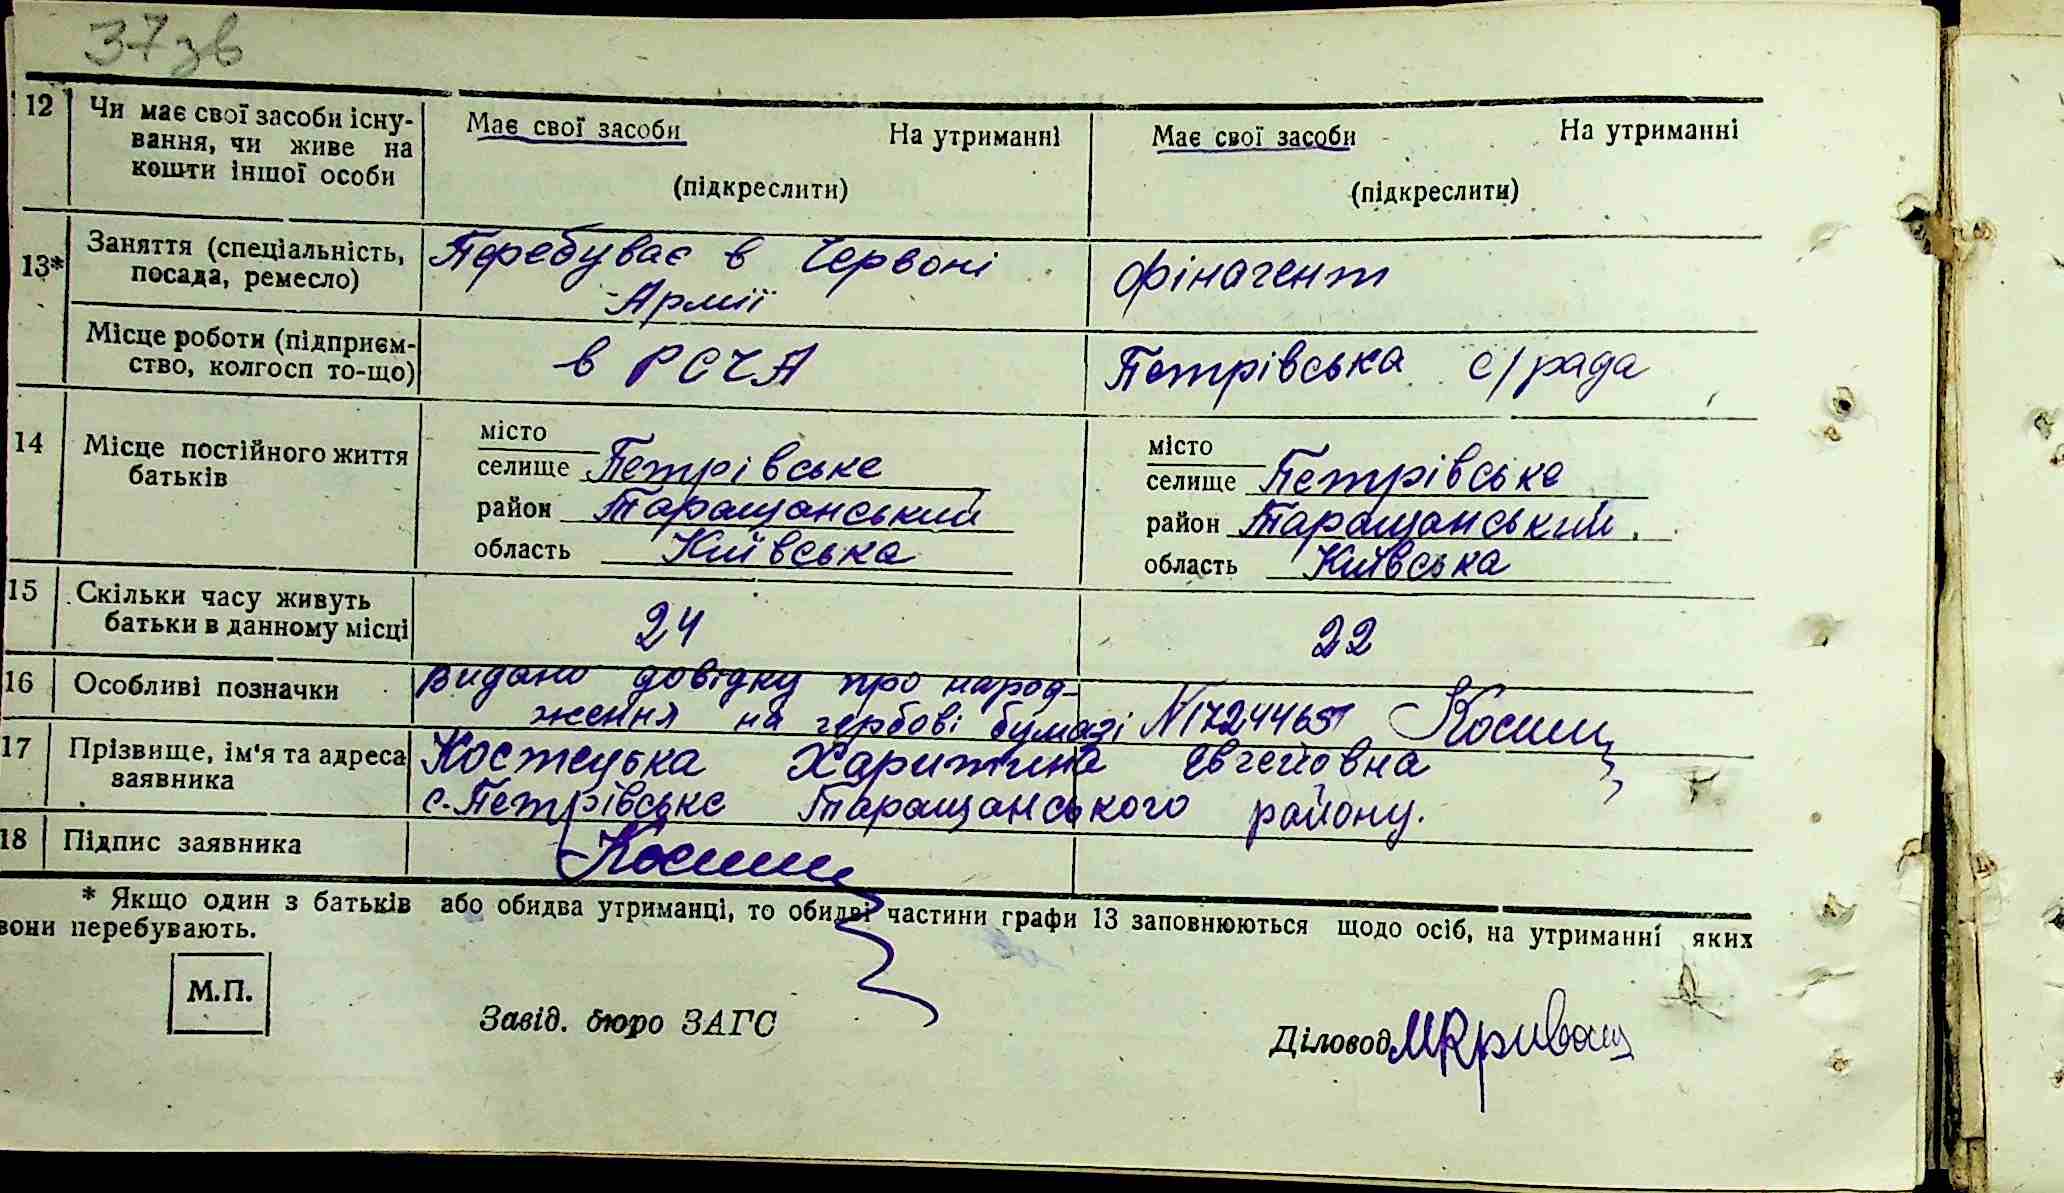 37 зв
12 Чи має свої засоби існу- Має свої засоби На утриманні Має свої засоби На утриманні
вання, чи живе на
кошти іншої особи (підкреслити) (підкреслити)
13* Заняття (спеціальність, Перебуває в Червоні фінагент
посада, ремесло) Армії
Місце роботи (підприєм- в РСЧА Петрівська с/рада
ство, колгосп то-що)
14 Місце постійного життя місто місто
батьків селище Петрівське селище Петрівське
район Таращанський район Таращанський
область Київська область Київська
15 Скільки часу живуть 24 22
батьки в данному місці
16 Особливі позначки Видано довідку про народ-
ження на гербові бумазі №
17 Прізвище, ім'я та адреса Костецька Харитина Євгеновна
заявника с. Петрівське Таращанського району.
18 Підпис заявника
* Якщо один з батьків або обидва утриманці, то обидві частини графи 13 заповнюються щодо осіб, на утриманні яких
вони перебувають.
М.П.
Завід. бюро ЗАГС Діловод